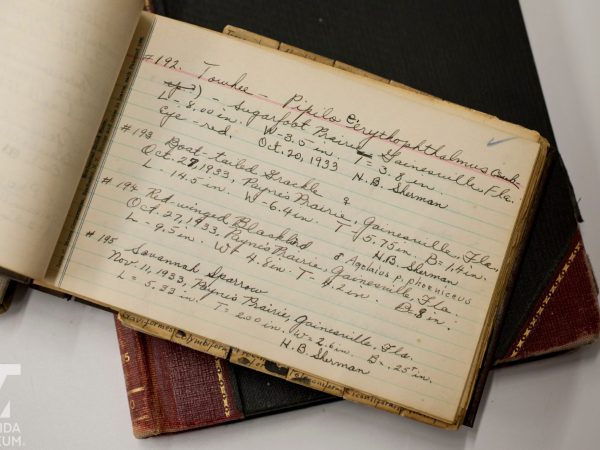 #192. Towhee - Pipilo erythophthalmus (sub-
sp?) - Sugarfoot Prairie, Gainesville, Fla.
L - 8.00 in. W - 3.5 in. T - 3.8 in.
Eye - red. Oct. 20, 1933 H.B. Sherman
#193 Boat-tailed Grackle ♂
Oct. 27, 1933, Payne's Prairie, Gainesville, Fla.
L - 14.5 in. W - 6.4 in. T - 5.75 in. B = 1.4 in.
H.B. Sherman
#194 Red-winged Blackbird ♂ Agelaius p. phoeniceus
Oct. 27, 1933, Payne's Prairie, Gainesville, Fla.
L - 9.5 in. W = 4.8 in. T - 4.2 in. B = 8 in.
#195 Savannah Sparrow
Nov. 11, 1933, Payne's Prairie, Gainesville, Fla.
L = 5.22 in. T = 2.00 in. W = 2.6 in. B = .25 in.
H.B. Sherman